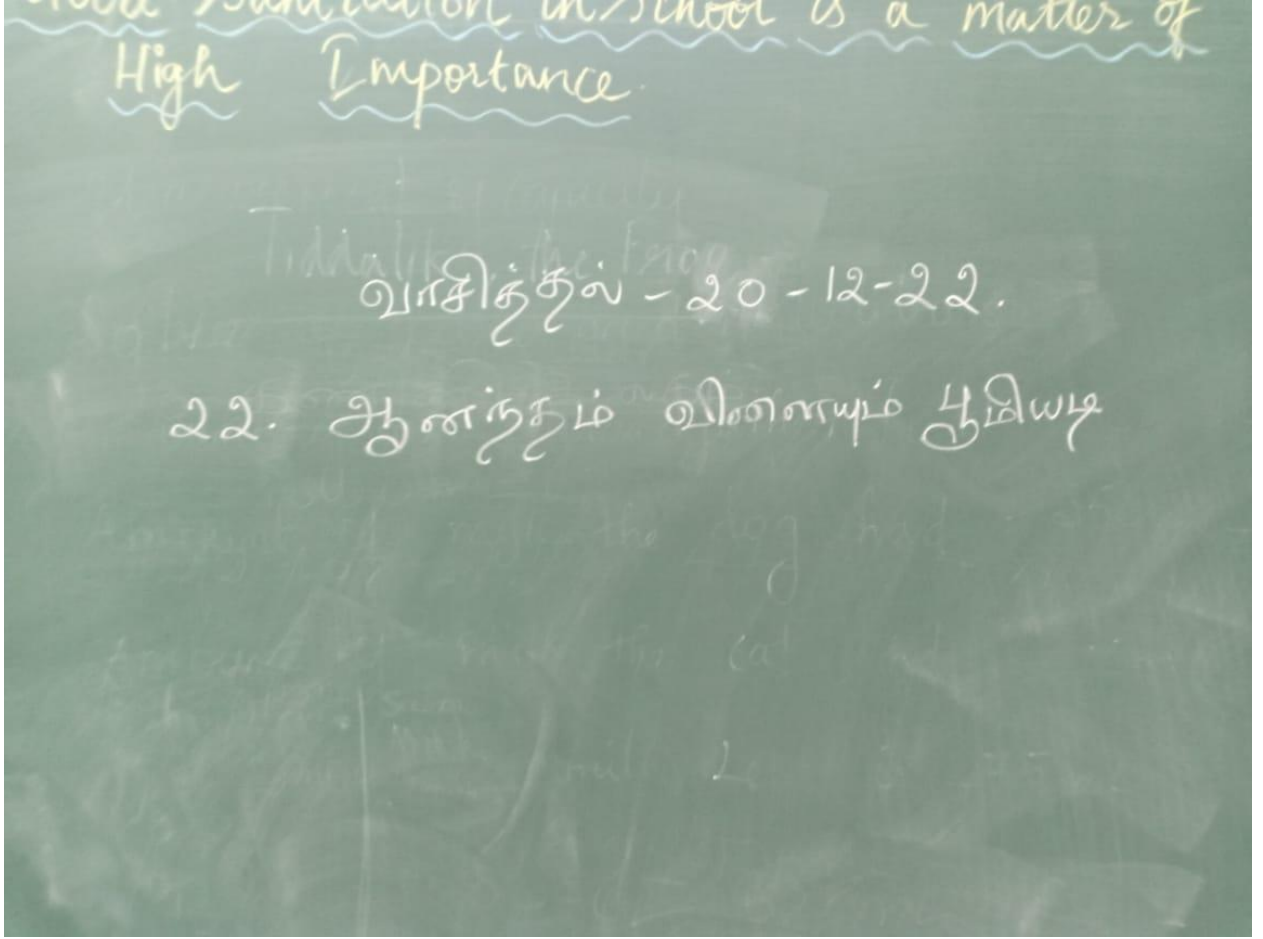 Sanitation in School is a matter of
High Importance.
வாசித்தல் - 20 - 12-22.
22. ஆனந்தம் விளையும் பூமியடி